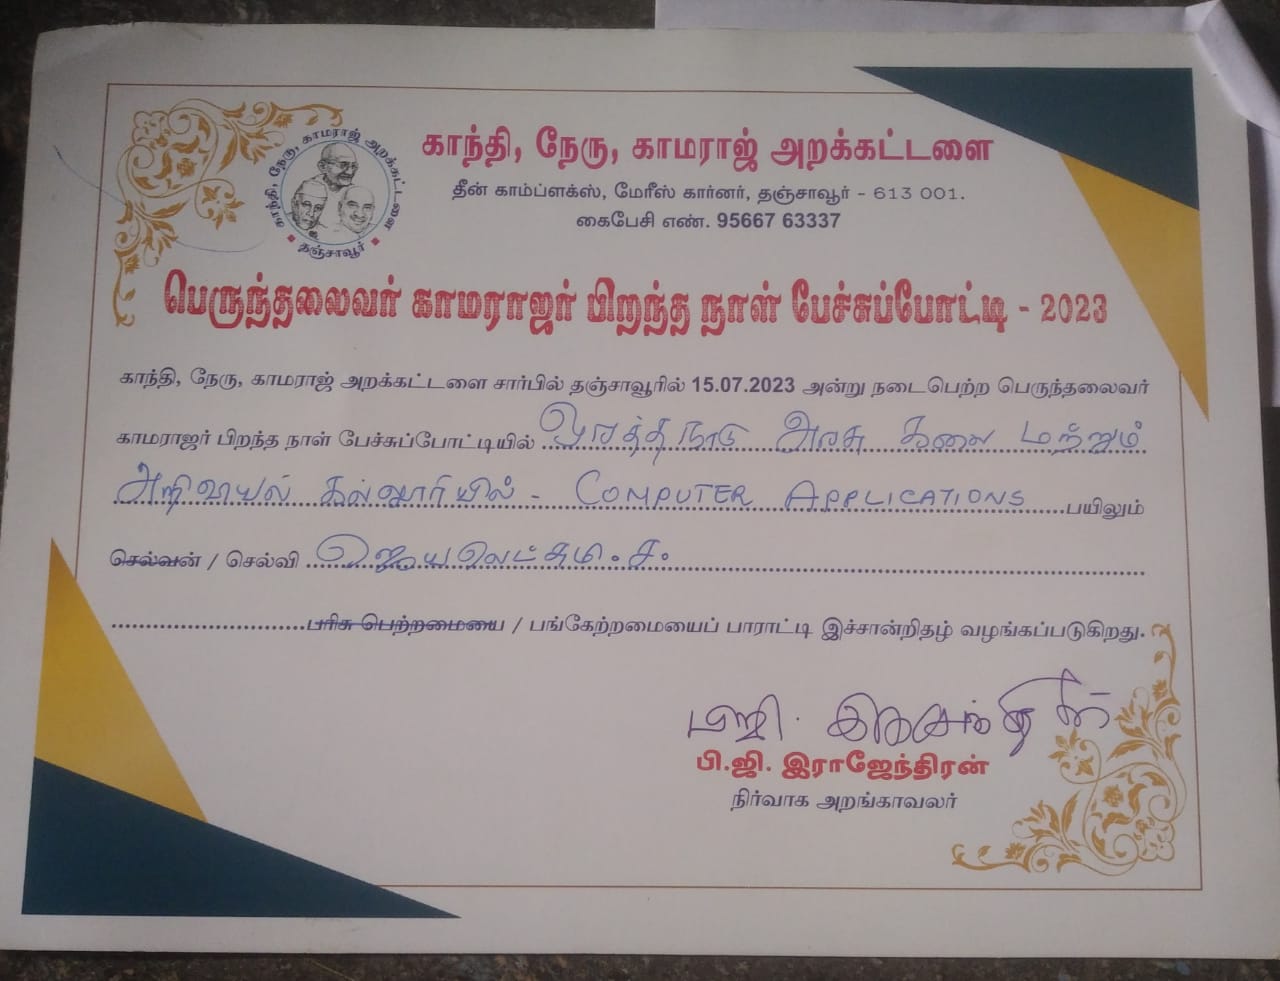 காந்தி, நேரு, காமராஜ் அறக்கட்டளை
தஞ்சாவூர்
காந்தி, நேரு, காமராஜ் அறக்கட்டளை
தீன் காம்ப்ளக்ஸ், மேரீஸ் கார்னர், தஞ்சாவூர் - 613 001.
கைபேசி எண். 95667 63337
பெருந்தலைவர் காமராஜர் பிறந்த நாள் பேச்சுப்போட்டி - 2023
காந்தி, நேரு, காமராஜ் அறக்கட்டளை சார்பில் தஞ்சாவூரில் 15.07.2023 அன்று நடைபெற்ற பெருந்தலைவர்
காமராஜர் பிறந்த நாள் பேச்சுப்போட்டியில் ஒரத்தநாடு அரசு கலை மற்றும்
அறிவியல் கல்லூரியில் - COMPUTER APPLICATIONS பயிலும்
செல்வன் / செல்வி ஜெயலெட்சுமி. ச.
பரிசு பெற்றமையை / பங்கேற்றமையைப் பாராட்டி இச்சான்றிதழ் வழங்கப்படுகிறது.
பி.ஜி. இராஜேந்திரன்
நிர்வாக அறங்காவலர்